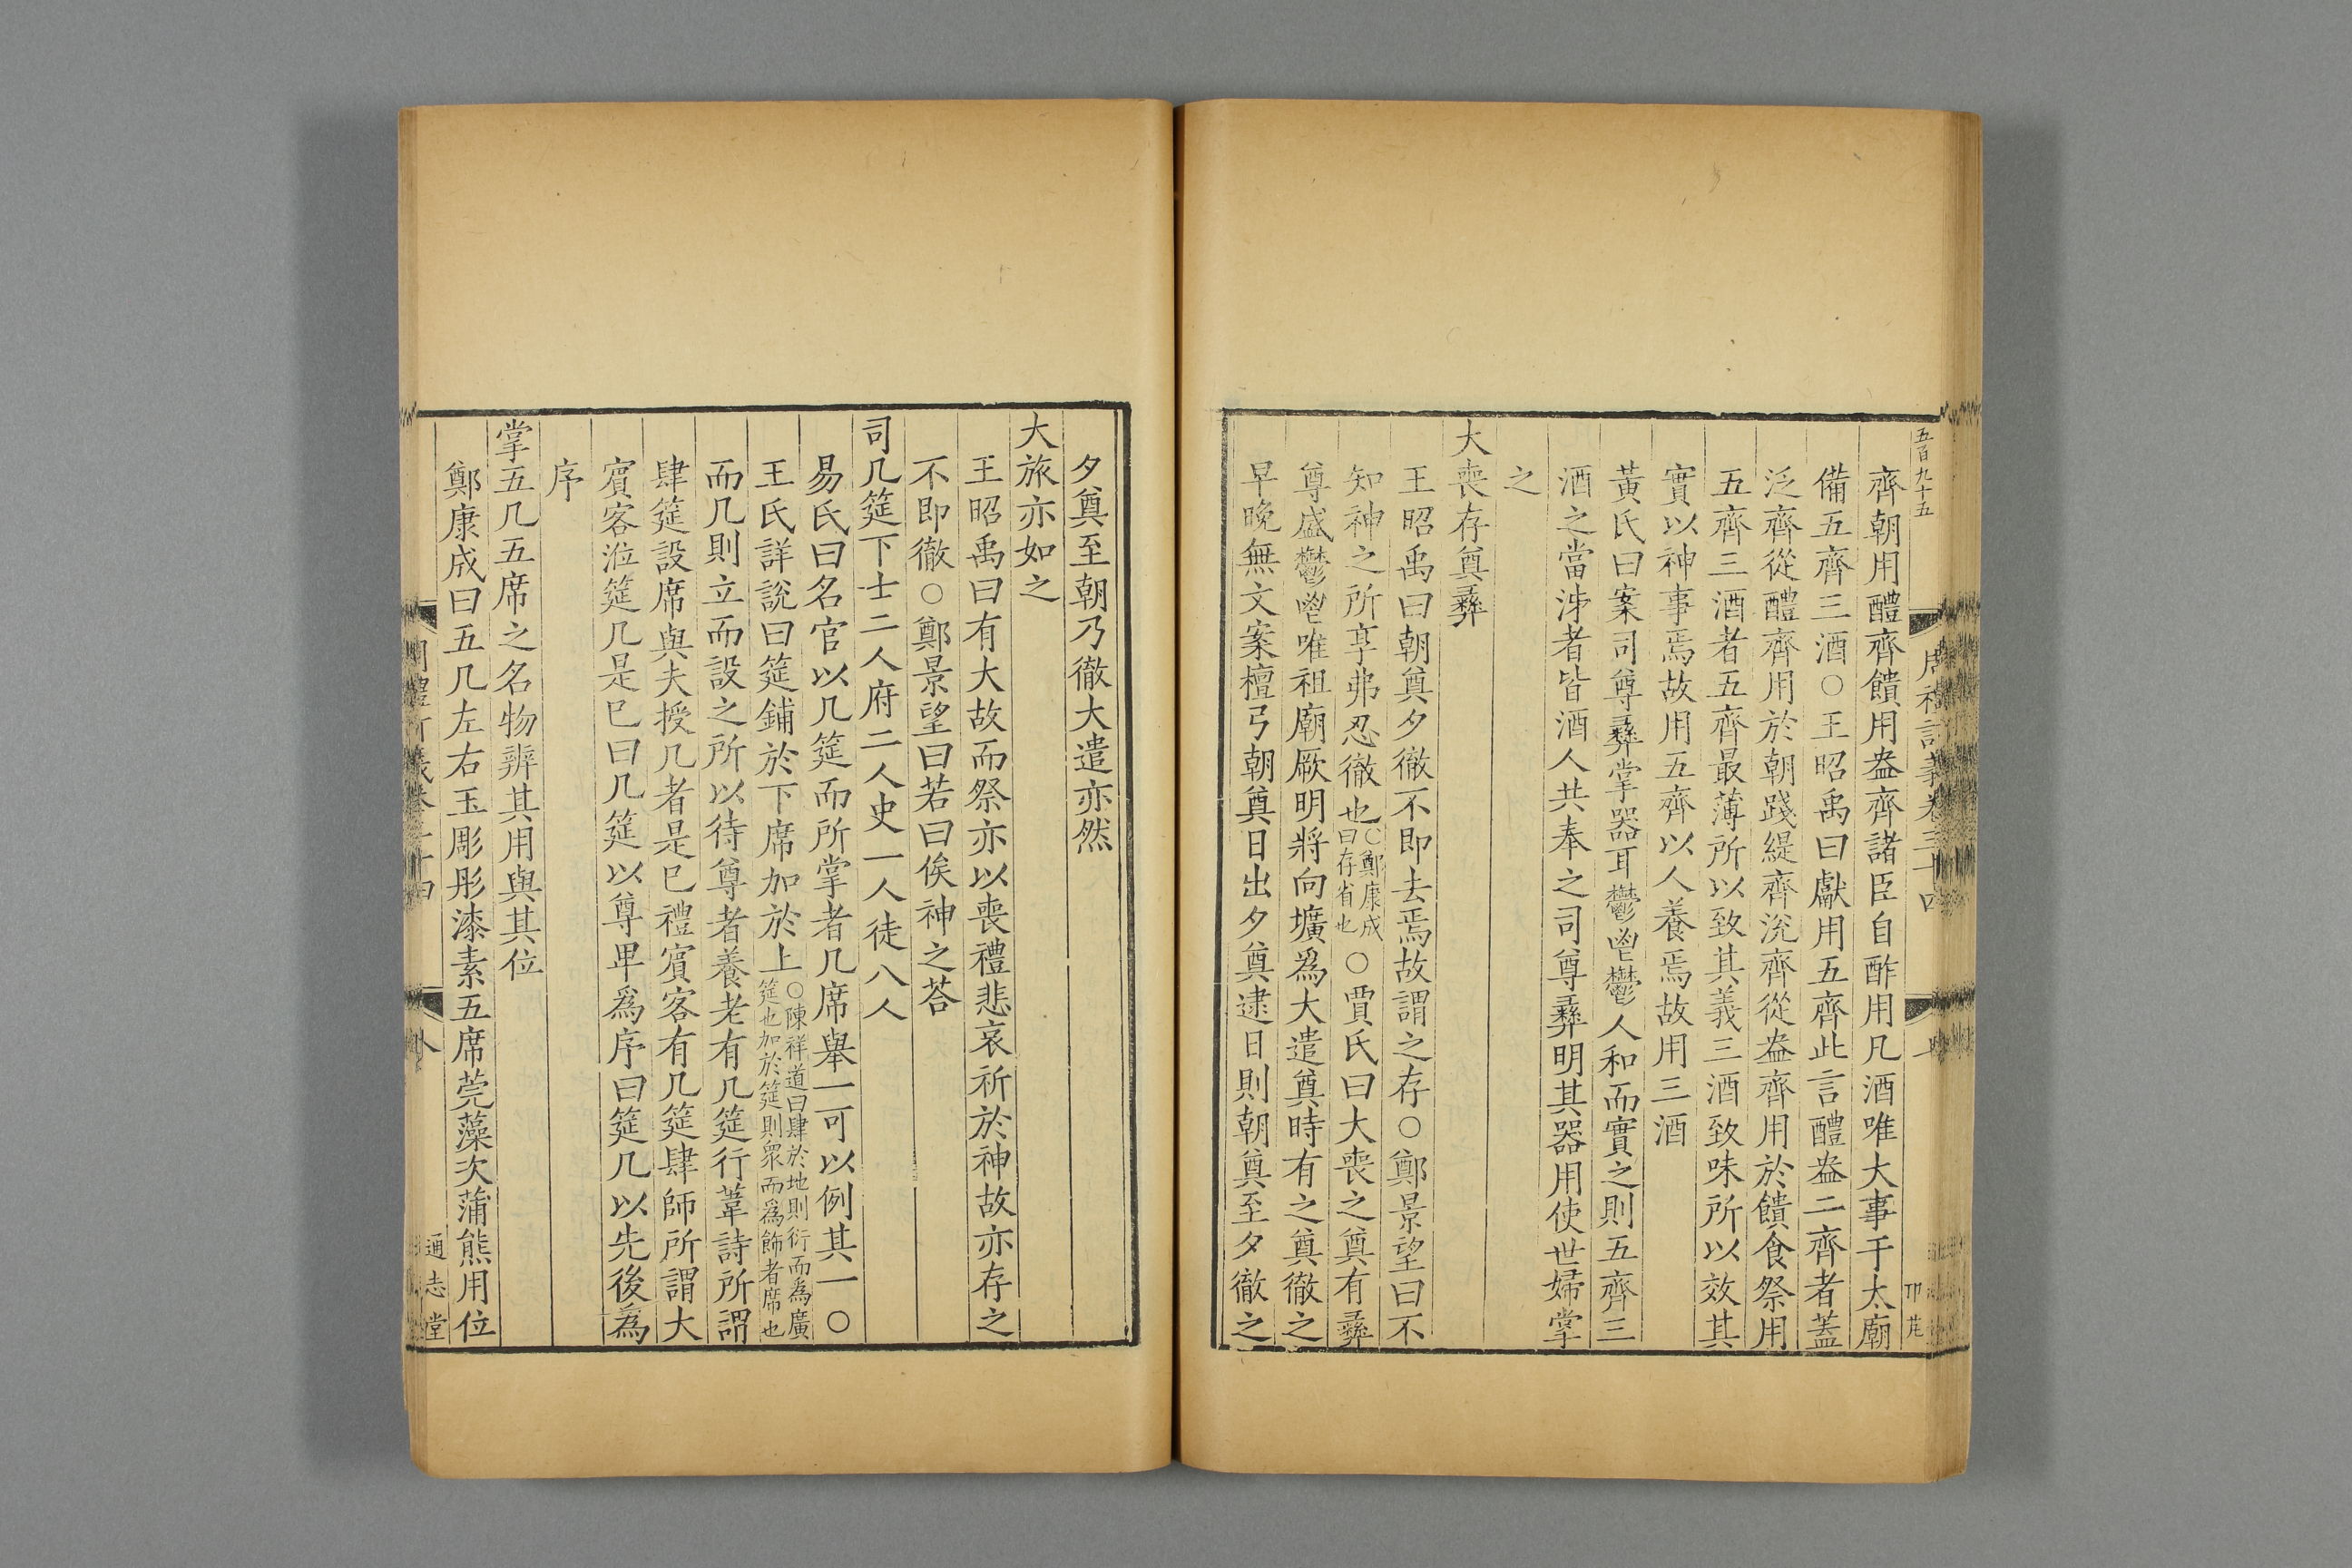 五百九十五
齊朝用醴齊饋用盎齊諸臣自酢用凡酒唯大事于太廟
備五齊三酒○王昭禹曰獻用五齊此言醴盎二齊者蓋
泛齊從醴齊用於朝踐緹齊涗齊從盎齊用於饋食祭用
五齊三酒者五齊最薄所以致其義三酒致味所以效其
實以神事焉故用五齊以人養焉故用三酒
黃氏曰案司尊彞掌器耳鬱鬯鬱人和而實之則五齊三
酒之當泲者皆酒人共奉之司尊彞明其器用使世婦掌
之
大喪存奠彞
王昭禹曰朝奠夕徹不即去焉故謂之存○鄭景望曰不
知神之所享弗忍徹也○鄭康成曰存省也○賈氏曰大喪之奠有彞
尊盛鬱鬯唯祖廟厥明將向壙爲大遣奠時有之奠徹之
早晚無文案檀弓朝奠日出夕奠逮日則朝奠至夕徹之
夕奠至朝乃徹大遣亦然
大旅亦如之
王昭禹曰有大故而祭亦以喪禮悲哀祈於神故亦存之
不即徹○鄭景望曰若曰俟神之荅
司几筵下士二人府二人史一人徒八人
易氏曰名官以几筵而所掌者几席舉一可以例其一○
王氏詳說曰筵鋪於下席加於上○陳祥道曰肆於地則衍而為廣筵也加於筵則眾而爲飾者席也
而几則立而設之所以待尊者養老有几筵行葦詩所謂
肆筵設席與夫授几者是已禮賓客有几筵肆師所謂大
賓客涖筵几是已曰几筵以尊卑爲序曰筵几以先後爲
序
掌五几五席之名物辨其用與其位
鄭康成曰五几左右玉彫彤漆素五席莞藻次蒲熊用位
通志堂